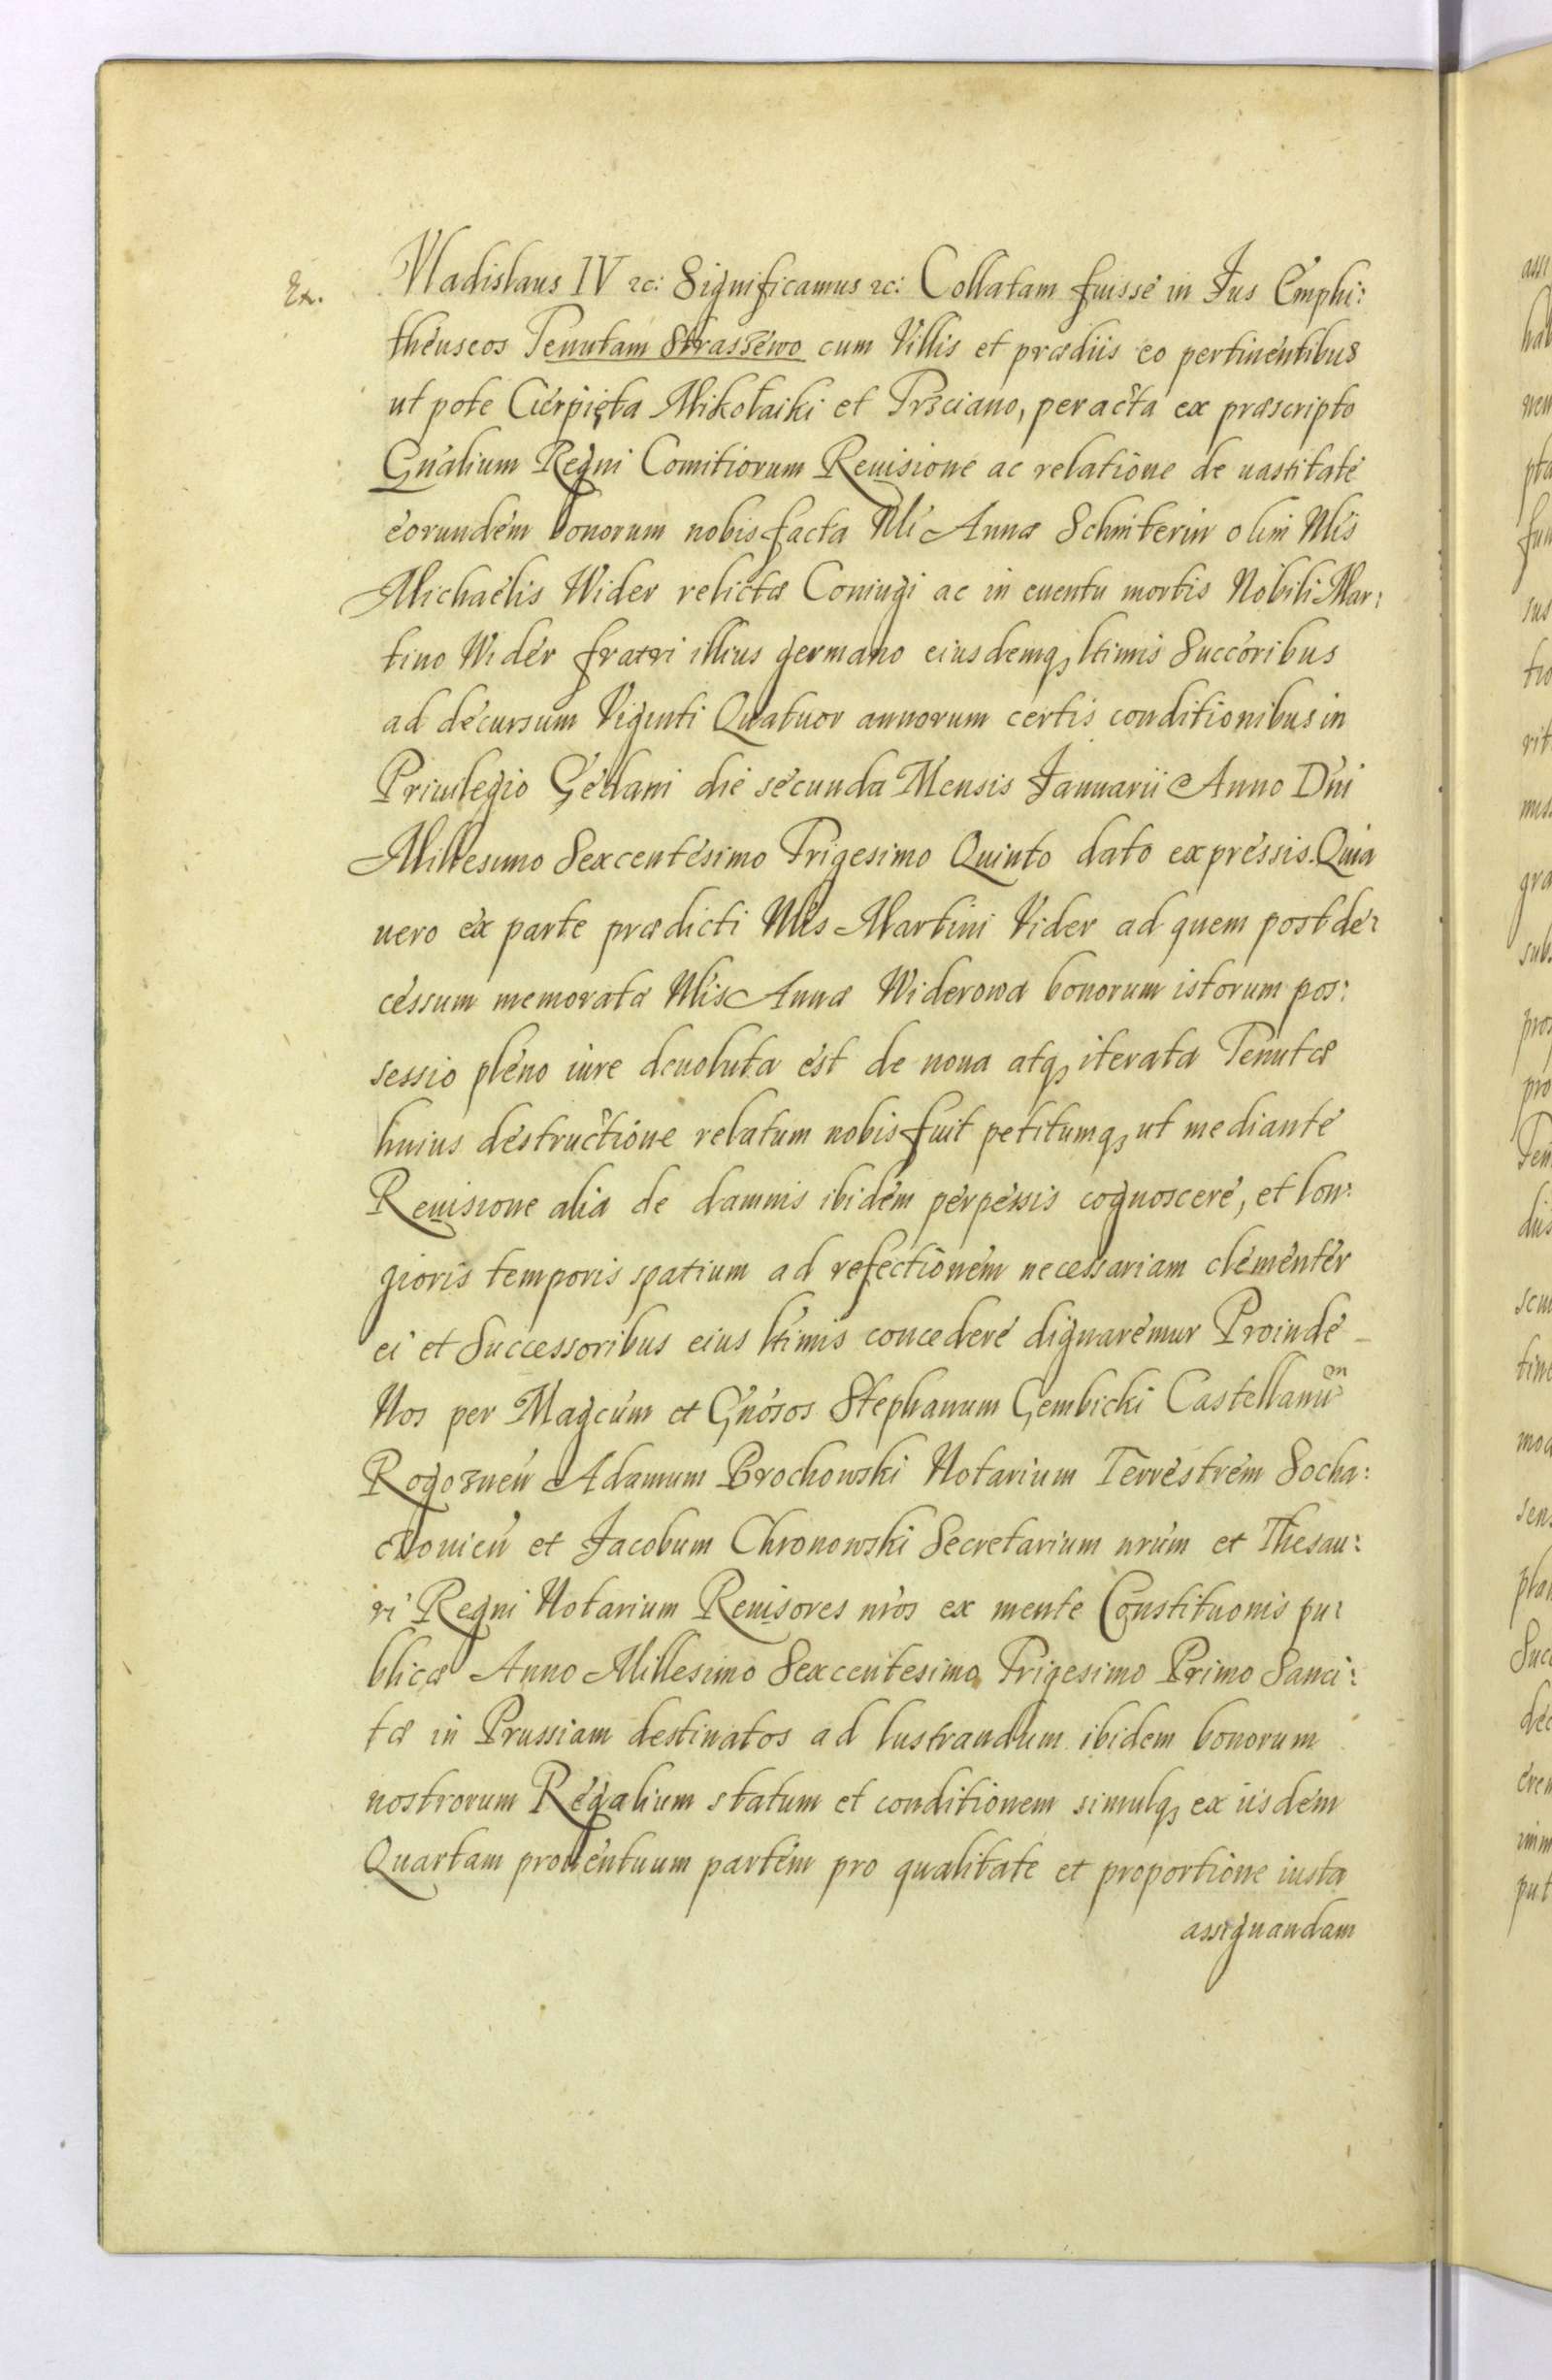 Ex.
Vladislaus IV ꝛc: Significamus ꝛc: Collatam fuisse in Jus Emphi:
theuseos Tenutam Straszewo cum Villis et prædiis eo pertinentibus
ut pote Cierpięta Mikołaiki et Trzciano, peracta ex præscripto
Gńalium Regni Comitiorum Reuisione ac relatione de uastitate
eorundem bonorum nobis facta Nli Annæ Schmiterin olim Nlis
Michaelis Wider relictæ Coniugi ac in euentu mortis Nobili Mar:
tino Wider fratri illius germano eiusdemqꝫ ltimis Succoribus
ad decursum Viginti Quatuor annorum certis conditionibus in
Priuilegio Gedani die secunda Mensis Januarii Anno Dńi
Millesimo Sexcentesimo Trigesimo Quinto dato expressis. Quia
uero ex parte prædicti Nlis Martini Vider ad quem post de:
cessum memoratæ Nlis Annæ Widerowa bonorum istorum pos:
sessio pleno iure deuoluta est de noua atqꝫ iterata Tenutæ
huius destructione relatum nobis fuit petitumqꝫ ut mediante
Reuisione alia de damnis ibidem perpessis cognoscere, et lon:
gioris temporis spatium ad refectionem necessariam clementer
ei et Successoribus eius ltimis concedere dignaremur Proinde
Nos per Magcum et Gńosos Stephanum Gembicki Castellanum
Rogoznen Adamum Brochowski Notarium Terrestrem Socha:
czouien et Jacobum Chronowski Secretarium nrum et Thesau:
ri Regni Notarium Reuisores nros ex mente Constituonis pu:
blicæ Anno Millesimo Sexcentesimo Trigesimo Primo Sanci:
tæ in Prussiam destinatos ad lustrandum ibidem bonorum
nostrorum Regalium statum et conditionem simulqꝫ ex iisdem
Quartam prouentuum partem pro qualitate et proportione iusta
assignandam